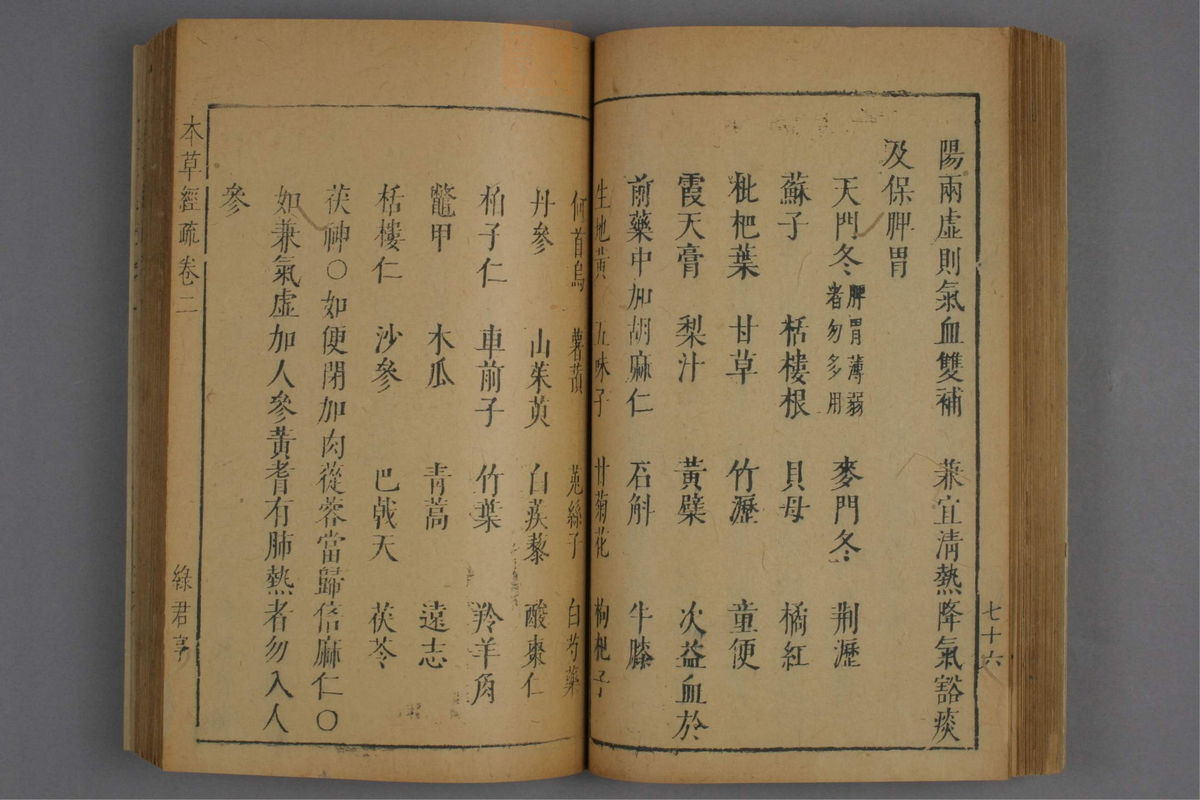 七十六
陽兩虛則氣血雙補　兼宜清熱降氣豁痰
及保脾胃
天門冬　脾胃薄弱者勿多用　麥門冬　荆瀝
蘇子　栝樓根　貝母　橘紅
枇杷葉　甘草　竹瀝　童便
霞天膏　梨汁　黃檗　次益血於
前藥中加胡麻仁　石斛　牛膝
生地黃　五味子　甘菊花　枸杞子
何首烏　薯蕷　菟絲子　白芍藥
丹參　山茱萸　白蒺藜　酸棗仁
柏子仁　車前子　竹葉　羚羊角
鼈甲　木瓜　青蒿　遠志
栝樓仁　沙參　巴戟天　茯苓
茯神○如便閉加肉從蓉當歸倍麻仁○
如兼氣虛加人參黃耆有肺熱者勿入人
參
本草經疏卷二
綠君亭